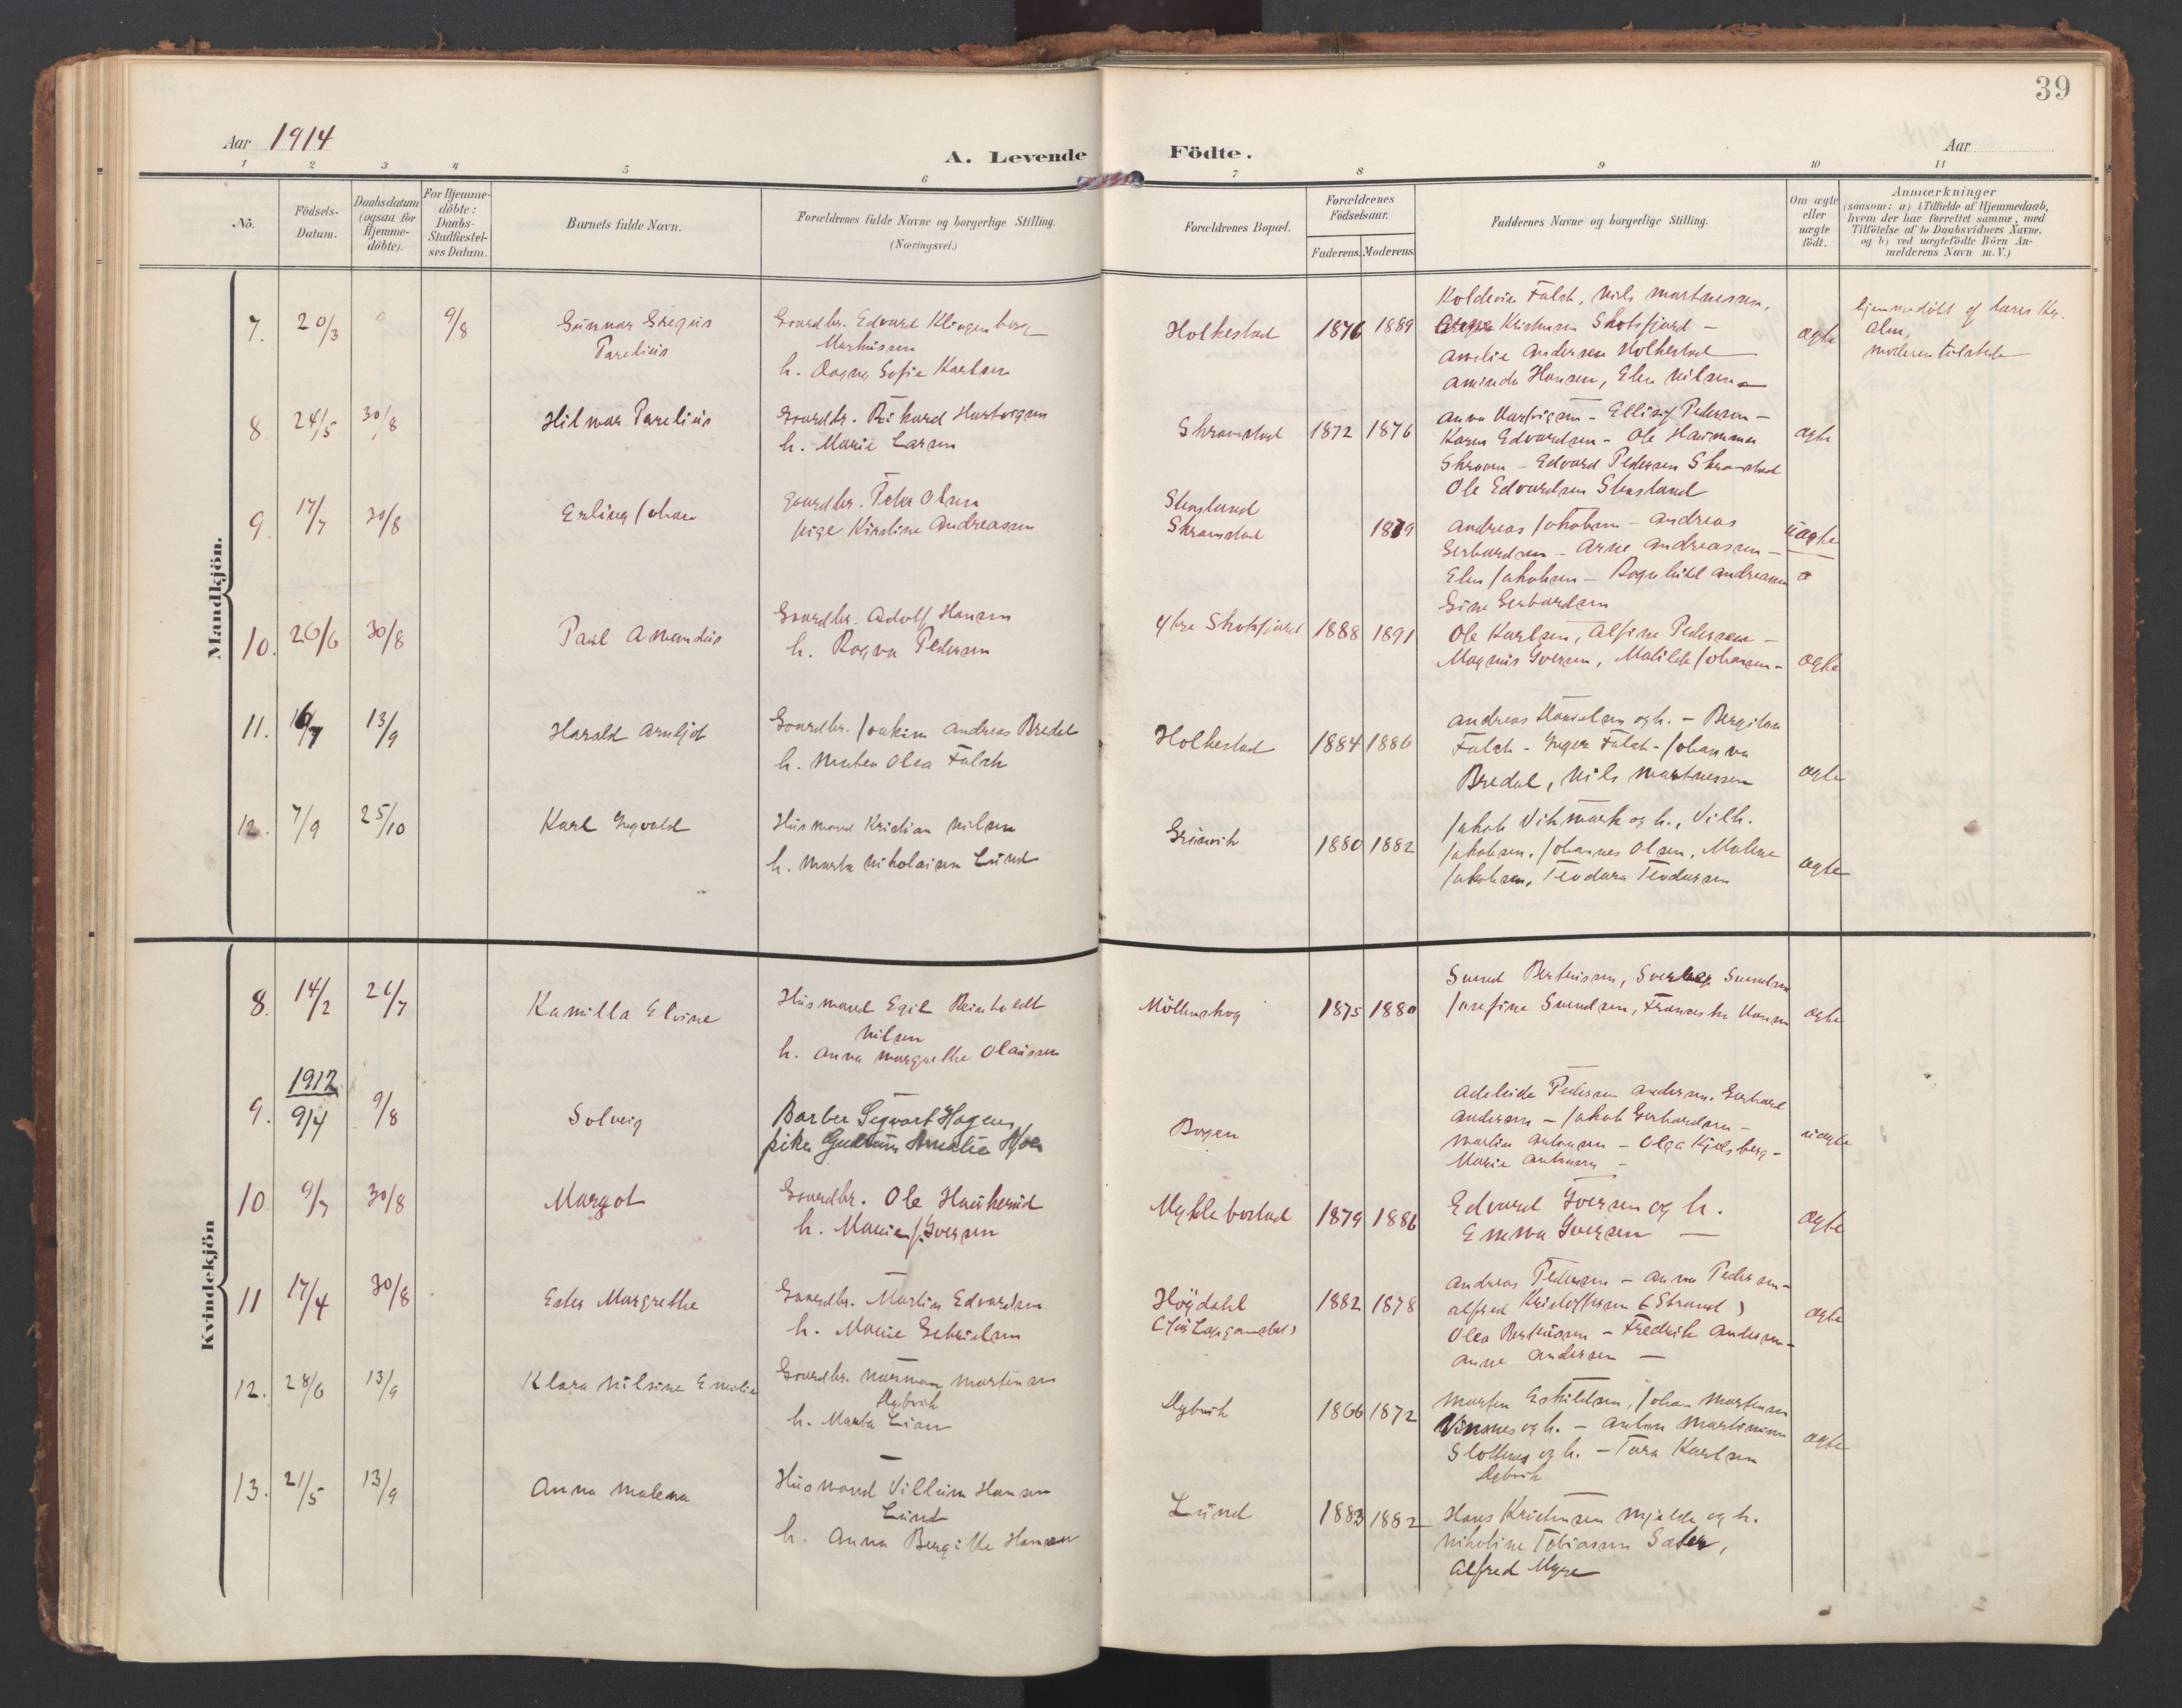 39
Aar 1914
A. Levende Födte.
Aar
1 2 3 4 5 6 7 8 9 10 11
No.
Födsels-
Datum.
Daabsdatum
(ogsaa for
Hjemme-
döbte).
For Hjemme-
döbte:
Daabs-
Stadfæstel-
ses Datum.
Barnets fulde Navn.
Forældrenes fulde Navne og borgerlige Stilling.
(Næringsvei.)
Forældrenes Bopæl.
Forældrenes
Födselsaar.
Faderens. Moderens.
Faddernes Navne og borgerlige Stilling.
Om ægte
eller
uægte
födt.
Anmærkninger
(saasom: a) i Tilfælde af Hjemmedaab,
hvem der har forrettet samme, med
Tilföielse af to Daabsvidners Navne,
og b) ved uægtefödte Börn An-
melderens Navn m. V.)
Mandkjön.
7. 20/3 9/8
Gunnar Gregus
Parelius
Gaardbr. Edvard Klingenberg
Markussen
h. Dagny Sofie Karlsen
Holkestad 1876 1889
Koldevin Falch, Nils Martnessen,
Kristensen Skotsfjord -
Amalie Andersen Holkestad
Aminda Hansen, Elen Nilsen
ægte
hjemmedöbt af lærer
Alm,
moderen tilstede
8 24/5 30/8
Hilmar Parelius
Gaardbr. Rikard Hartvigsen
h. Marie Larsen
Skramstad 1872 1876
Anna Hartvigsen - Ellisif Pedersen -
Karen Edvardsen - Ole Hammer
Skraam - Edvard Pedersen Skramstad
Ole Edvardsen Stensland
ægte
9. 17/7 30/8
Erling Johan
Gaardbr. Peter Olsen
pige Kirstine Andreassen
Stensland
Skramstad 1879
Andreas Jakobsen - Andreas
Gerhardsen - Arne Andreassen -
Elen Jakobsen - Ragnhild Andreassen
Sine Gerhardsen
uægte
10. 26/6 30/8
Paul Amandus
Gaardbr. Adolf Hansen
h. Ragna Pedersen
Ytre Skotsfjord 1888 1891
Ole Karlsen, Alfine Pedersen -
Magnus Iversen, Matilde Johansen -
ægte
11. 16/7 13/9
Harald Arnljot
Gaardbr. Joakim Andreas Bredal
h. Matea Olea Falch
Holkestad 1884 1886
Andreas Danielsen og h. - Bergitha
Falch - Inger Falch - Johanna
Bredal, Nils Martnessen
ægte
12. 7/9 25/10
Karl Ingvald
Husmand Kristian Nilsen
h. Marta Nikolaisen Lund
Grünvik 1880 1882
Jakob Vikmark og h., Vilh.
Jakobsen, Johannes Olsen, Malene
Jakobsen, Teodora Teodorsen
ægte
Kvindekjön
8. 14/2 26/7
Kamilla Elvine
Husmand Egil Reinholdt
Nilsen
h. Anna Margrethe Olaussen
Möllenskog 1875 1880
Svend Bertinsen, Svendsen
Josefine Svendsen, Franseska Hansen
ægte
9. 1912
9/4 9/8
Solveig
Barber Sigvart Hagen,
pike Gudrun Amalia Moe
Bogen
Adeleide Pedersen Andersen, Gerhard
Andersen - Jakob Gerhardsen -
Martin Antonsen - Olga Kjelsberg -
Marie Antonsen -
uægte
10 9/7 30/8
Margot
Gaardbr. Ole Haukerud
h. Marie J. Iversen
Myklebostad 1879 1886
Edvard Iversen og h.
Emma Iversen
ægte
11 17/4 30/8
Ester Margrethe
Gaardbr. Martin Edvardsen
h. Marie Gabrielsen
Höydahl 1882 1878
Andreas Pedersen - Anna Pedersen -
Alfred Kristoffersen (Strand)
Olea Bertinsen - Fredrik Andersen -
Anne Andersen
ægte
12. 28/6 13/9
Klara Nilsine Emelie
Gaardbr. Norman Martensen
Dybvik
h. Marta Lian
Dybvik 1866 1872
Morten Eskildsen, Johan Mortensen
Vinsnes og h. - Anton Martinsen
Slottnes og h. - Tora Karlsen
Dybvik
ægte
13. 21/5 13/9
Anna Malena
Husmand Villum Hansen
Lund
h. Anna Bergitte Hansen
Lund 1883 1882
Hans Kristensen Mjelde og h.
Nikoline Tobiassen Sæter,
Alfred Myre